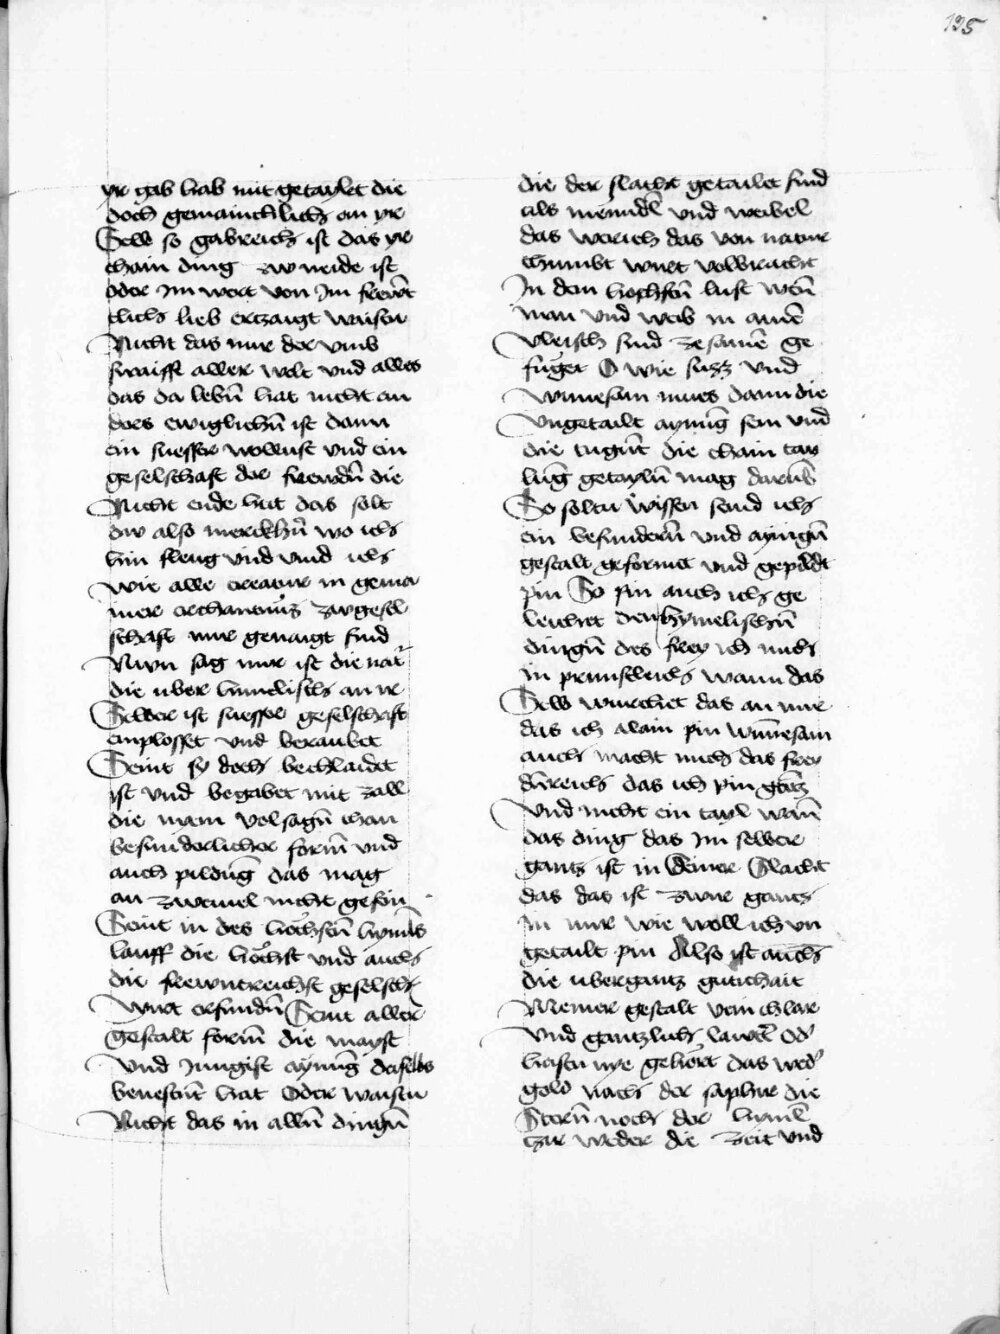 195
yr gab hab mit getaylet die
doch gemainchlich an yr
Selb so gabreich ist das yr
chain ding zw neide ist
oder Im wert von Im frewnt
tlich lieb ertzaigt waistu
Nicht das nur der vmb
swaiff aller welt vnd alles
das da lebñ hat nicht an
ders ewiglichñ ist dann
ein suesser wollust vnd ein
geselschaft der frewdñ die
Nicht ende hat das solt
dw also merckhñ wo ich
hin fleug vnd vind ich
wie alle creatur in gema
iner erchantnüz zwgesel
schaft mir genaigt sind
Nwn sag mir ist die nat̃
die uber himelisch an ir
Selber ist suesser geselschaft
emplosset vnd beraubet
Seint sy doch bechlaidet
ist vnd begabet mit zall
die nyem volsagñ chan
besunderlicher form̃ vnd
auch pildũg das mag
an zweiuel nicht gesein
Seint in des höchstñ hymels
lauff die höchst vnd auch
die frewntreichst geselsch
Wirt erfundñ Seint aller
gestalt form̃ die mayst
Vnd Innigist aynũg daselbs
beuestnt hat Oder waistu
Nicht das in allñ dingñ
die der slacht getailet sind
als mendl̃ vnd weibel
das werich das von natur
chumbt wirt volbracht
In dem hochstñ lust wen̄
man vnd weib in ainē
vleisch sind zesamē ge
füget O wie süzz vnd
wunesam mues dann die
Vngetailt aynũg sein vnd
die tugñt die chain tay
lũg getaylñ mag darũb
So soltu wissen seind ich
ein besundern̄ vnd aynigñ
gestalt geformet vnd gepildt
pin So pin auch ich ge
leichet den hymelischñ
dingñ des frey ich mich
in prinslech wann das
Selb wurchet das an mir
das ich alain pin wunnesam
auch macht mich das frew
dñreich das ich pin gantz
Vnd nicht ein tayl wan̄
das ding das Im selber
gantz ist in deiner Slacht
das das ist zwir gantz
in mir wie woll ich vn
getailt pin Also ist auch
die ubergantz gutichait
Meiner gestalt rein chlar
Vnd gantzlich lauter̃ Od̾
hastu nye gehört das wed̾
gold nach der saphir die
Stern̄ noch der hyml̃
tzir weder die zeit vnd